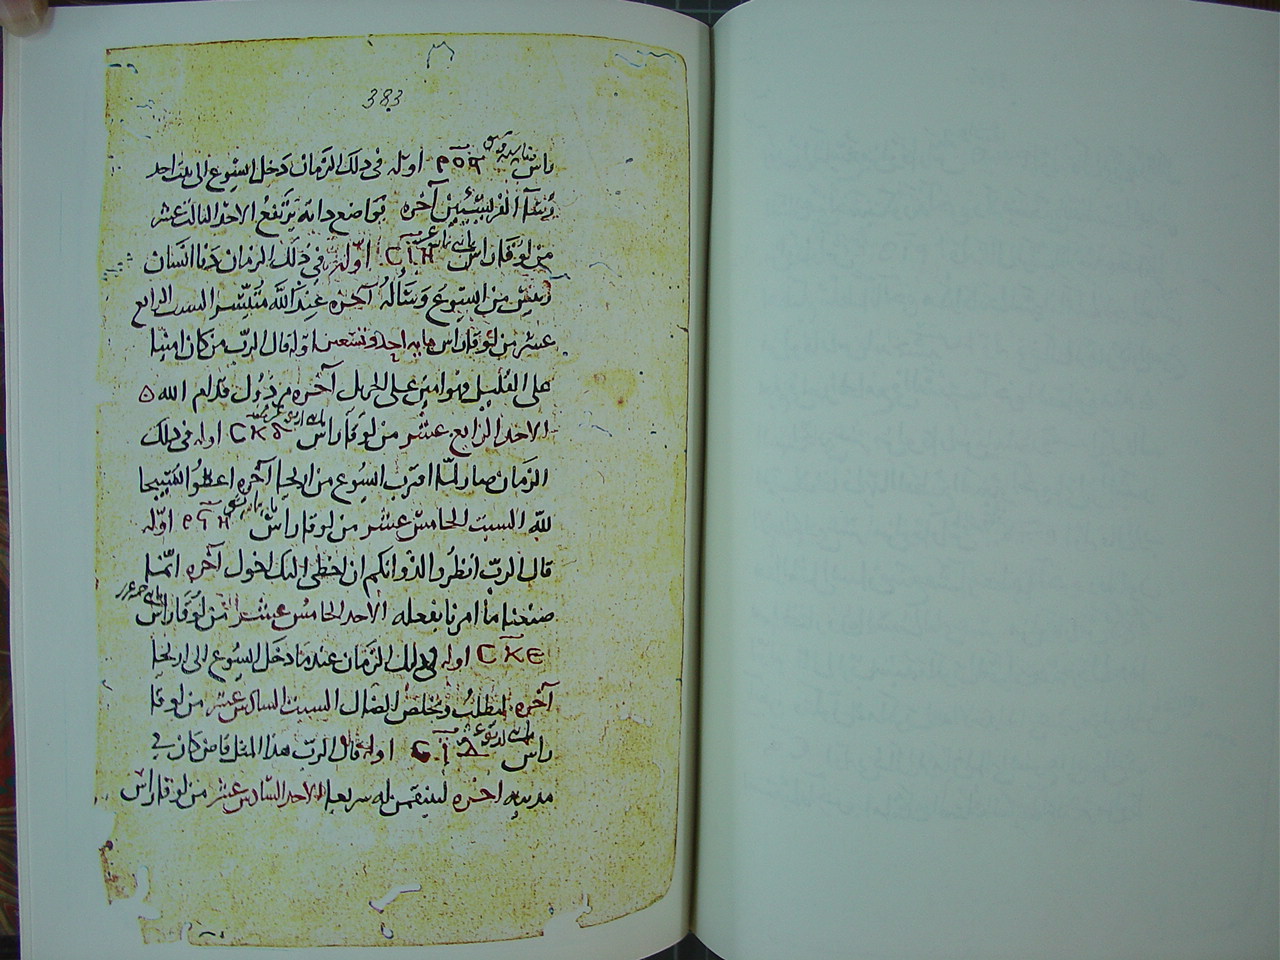 383
راس ϥⲟⲑ اوله في ذلك الزمان دخل ايسوع الى بيت احد
رؤسآ الفريسيين آخره تواضع ذاته يرتفع الاحد الثالث عشر
من لوقا راس ⲥⲓⲏ اوله في ذلك الزمان دنا انسان
رييس من ايسوع وسأله آخره عند الله متيسر السبت الرابع
عشر من لوقا راس مايه احد وتسعين اوله قال الرب من كان امينا
على القليل فهو امين على الجزيل آخره مرذول قدام الله
الاحد الرابع عشر من لوقا راس ⲥⲕⲇ اوله في ذلك
الزمان صار لما اقترب ايسوع من اريحا آخره اعطوا تسبيحا
لله السبت الخامس عشر من لوقا راس ϥϥⲏ اوله
قال الرب انظروا لذواتكم ان اخطى اليك اخوك آخره انما
صنعنا ما امرنا بفعله الاحد الخامس عشر من لوقا راس
ⲥⲕⲉ اوله في ذلك الزمان عندما دخل ايسوع الى اريحا
آخره ليطلب ويخلص الضال السبت السادس عشر من لوقا
راس ⲥⲓⲇ اوله قال الرب هذا المثل قاض كان في
مدينه اخره لينتقمن له سريعا الاحد السادس عشر من لوقا راس